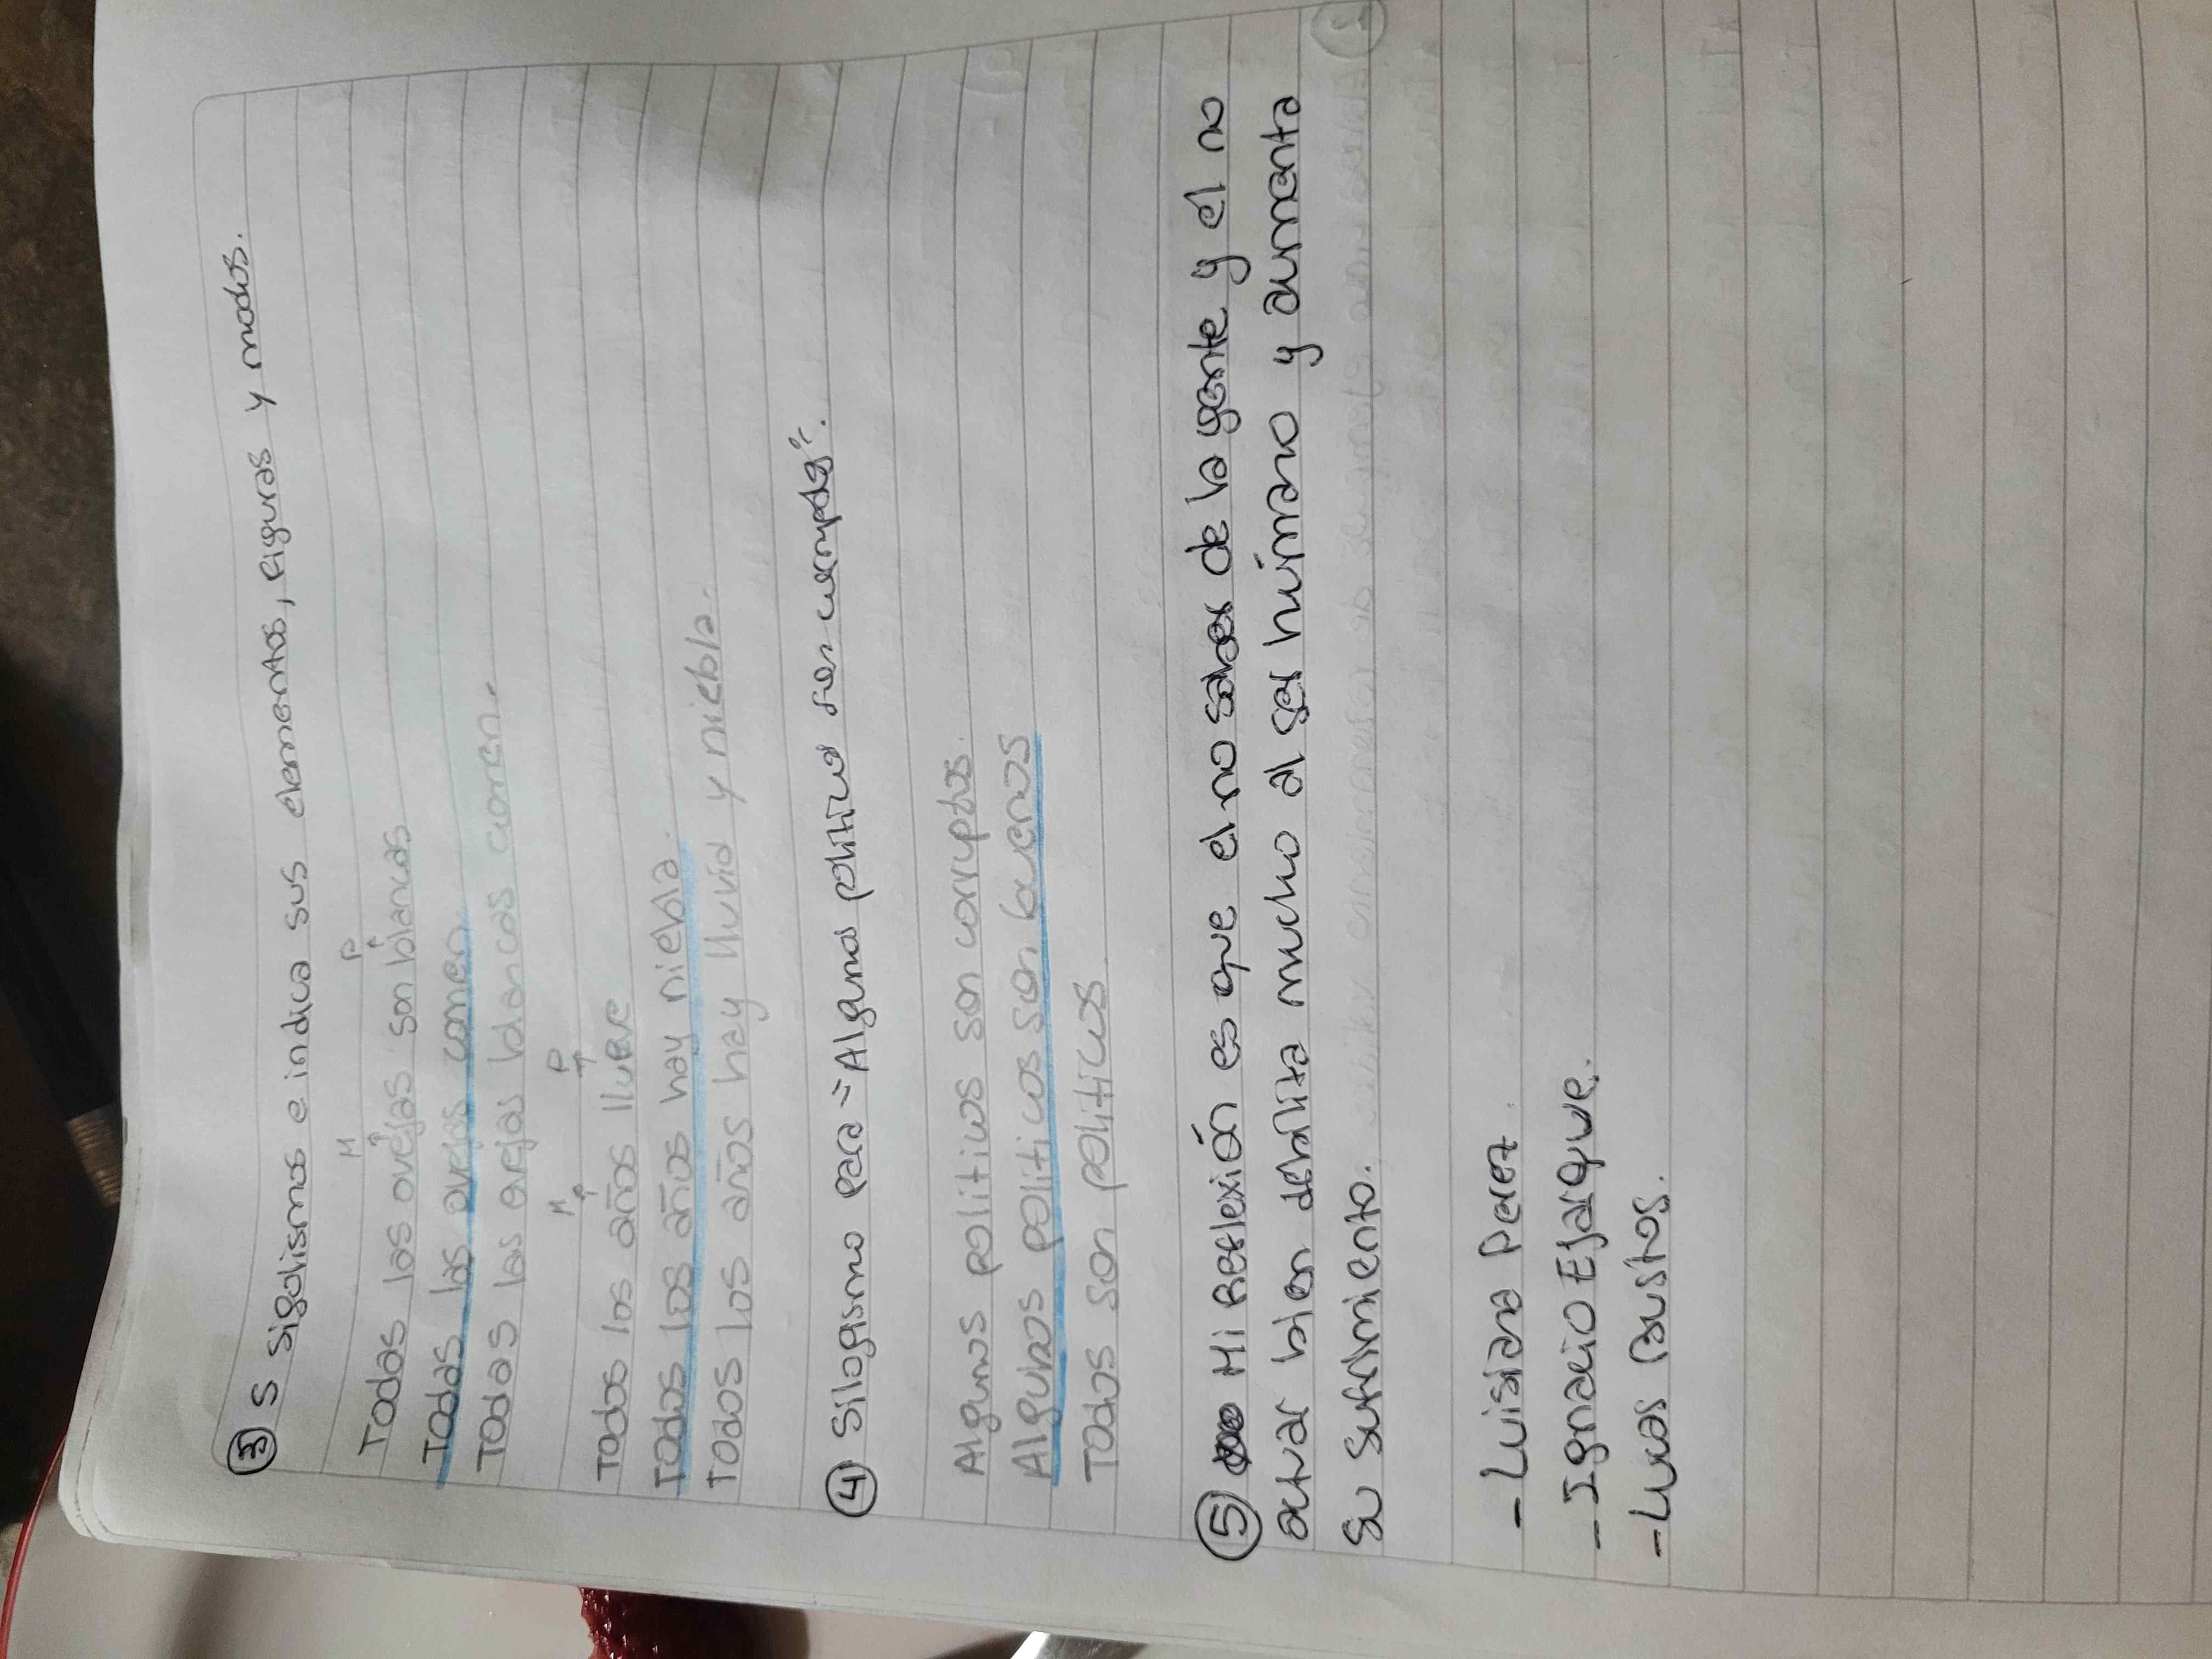 ③ 5 sigolismos e indica sus elementos, figuras y modos.
M P
Todas las ovejas son blancas
Todas las ovejas comen.
Todas las ovejas blancas comen.
M P
Todos los años llueve
Todos los años hay niebla.
Todos los años hay lluvia y niebla.
④ Silogismo para "Algunos politicos son corruptos".
Algunos politicos son corruptos.
Algunos politicos son buenos
Todos son politicos.
⑤ Mi Reflexión es que el no saber de la gente y el no
actuar bien debilita mucho al ser húmano y aumenta
su sufrimiento.
- Luisiana Perez
- Ignacio Ejarque.
- Lucas Bustos.